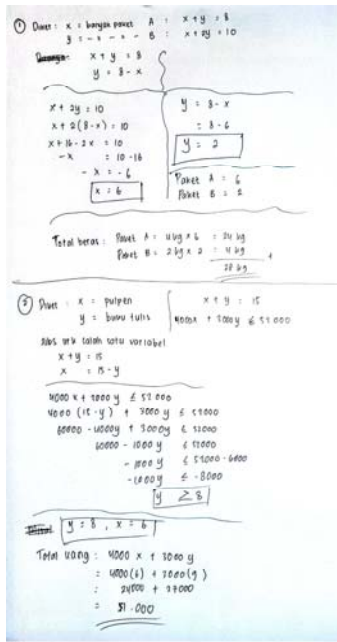 ① Diket : x = banyak paket A : x + y = 8
y = - " - - " - B : x + 2y = 10
x + y = 8
y = 8 - x
x + 2y = 10
x + 2(8-x) = 10
x + 16 - 2x = 10
-x = 10 - 16
-x = -6
x = 6
y = 8 - x
= 8 - 6
y = 2
Paket A = 6
Paket B = 2
Total beras : Paket A = 4 kg × 6 = 24 kg
Paket B = 2 kg × 2 = 4 kg +
28 kg
② Diket : x = pulpen
y = buku tulis
x + y = 15
4000x + 3000y ≤ 52000
subs utk salah satu variabel
x + y = 15
x = 15 - y
4000x + 3000y ≤ 52000
4000 (15 - y) + 3000y ≤ 52000
60000 - 4000y + 3000y ≤ 52000
60000 - 1000y ≤ 52000
- 1000y ≤ 52000 - 6000
-1000y ≤ -8000
y ≥ 8
y = 8 , x = 6
Total uang : 4000 x + 3000 y
= 4000(6) + 3000(9)
: 24000 + 27000
= 51.000